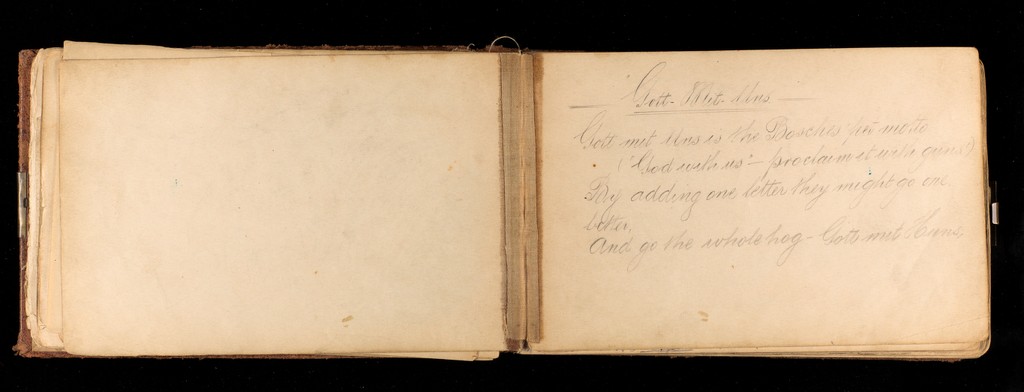 Gott Mit Uns
Gott mit Uns is the Bosches' motto
("God with us" – proclaim it with guns!)
By adding one letter they might go one
better,
And go the whole hog – Gott mit Huns